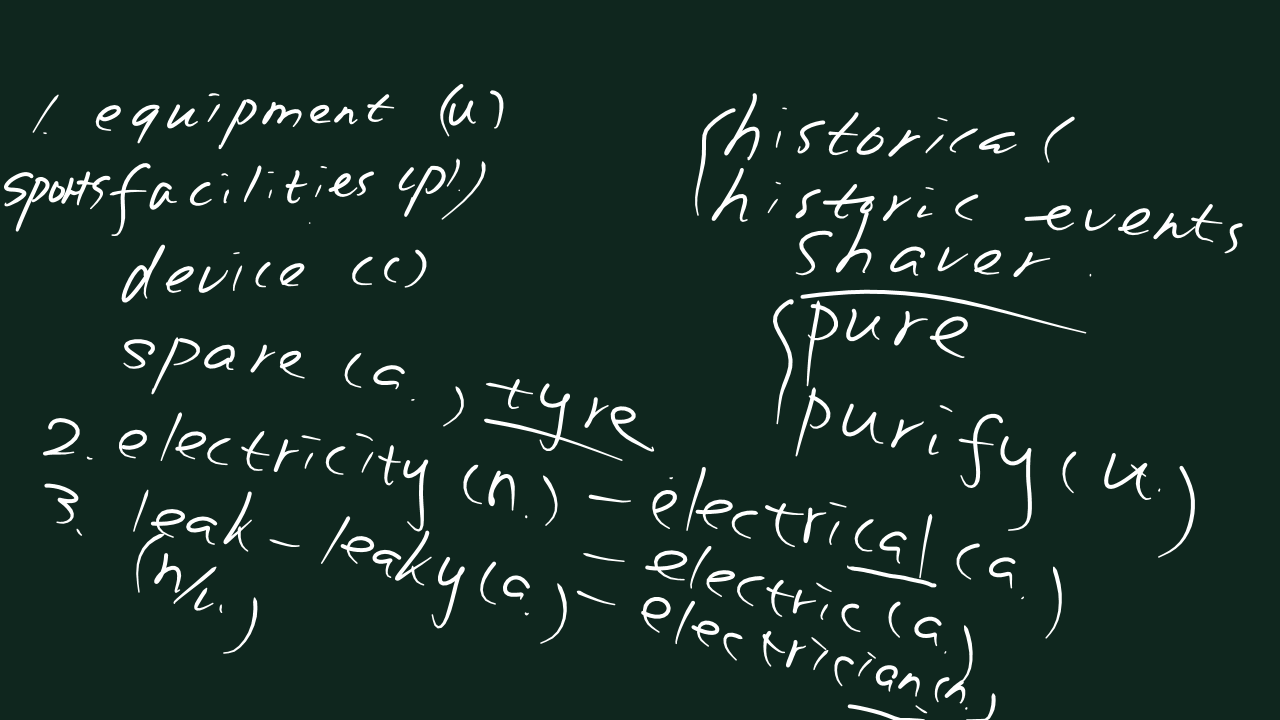 1. equipment (u)
sports facilities (pl.)
device (c)
spare (a.) tyre
2. electricity (n.) - electrical (a.)
- electric (a.)
- electrician (n.)
3. leak - leaky (a.)
(n/v.)
historical
historic events
shaver
pure
purify (v.)